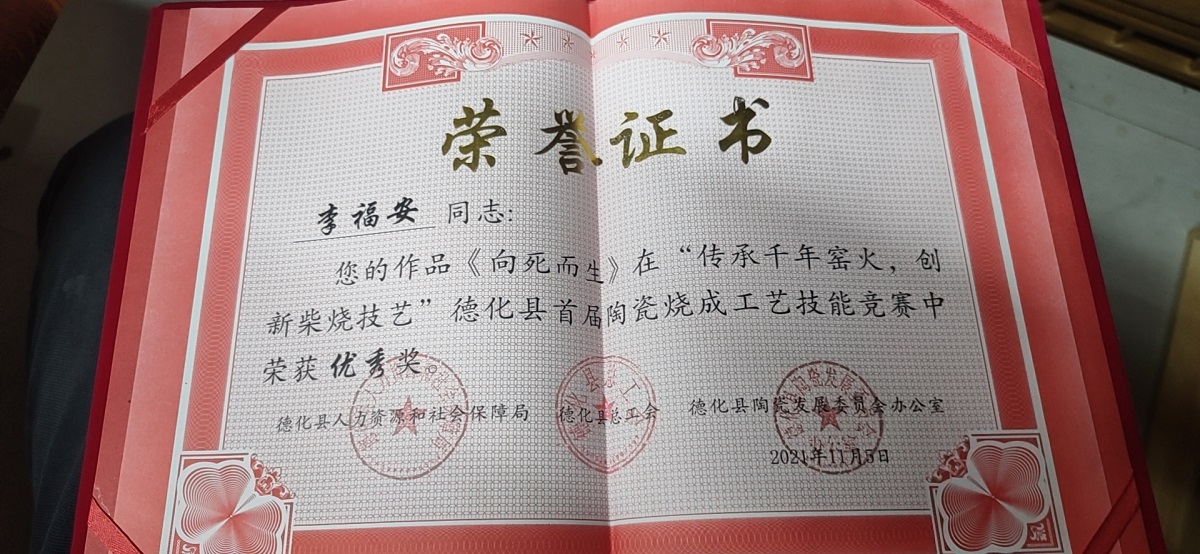 荣誉证书
李福安 同志:
您的作品《向死而生》在“传承千年窑火，创
新柴烧技艺”德化县首届陶瓷烧成工艺技能竞赛中
荣获优秀奖。
德化县人力资源和社会保障局 德化县总工会 德化县陶瓷发展委员会办公室
2021年11月5日